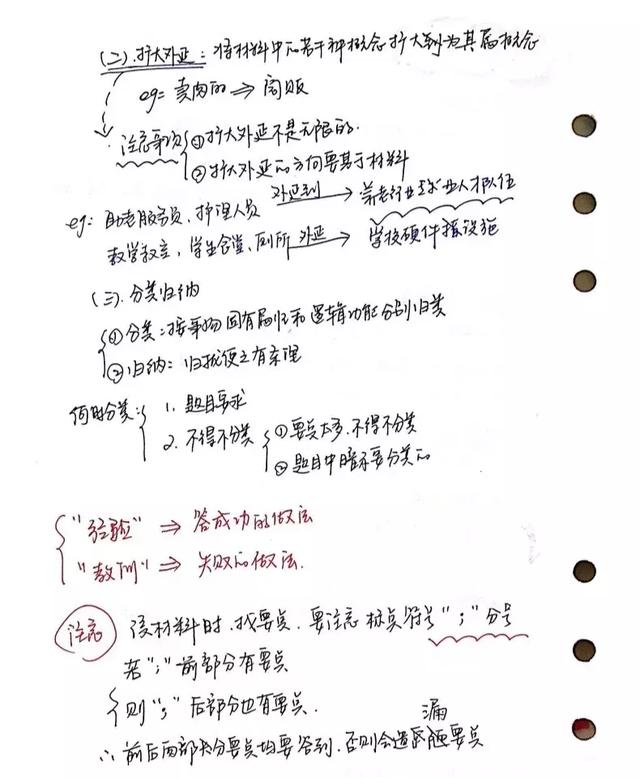 (二).扩大外延：将材料中的若干种概念扩大到为其属概念
eg：卖肉的 ⇒ 商贩
注意事项 ①扩大外延不是无限的.
②扩大外延的方向要基于材料
eg：助老服务员、护理人员 外延到→ 养老行业专业人才队伍
教学教室，学生食堂、厕所 外延→ 学校硬件 设施
(三).分类归纳
①分类：按事物固有属性和逻辑功能分别归类
②归纳：归拢使之有条理
何时分类： 1. 题目要求
2. 不得不分类 ①要点太多.不得不分类
②题目中暗示要分类的
"经验" ⇒ 答成功的做法
"教训" ⇒ 失败的做法.
注意 读材料时.找要点.要注意标点符号"；"分号
若"；"前部分有要点
则"；"后部分也有要点.
漏
∴ 前后两部分要点均要答到.否则会遗 要点